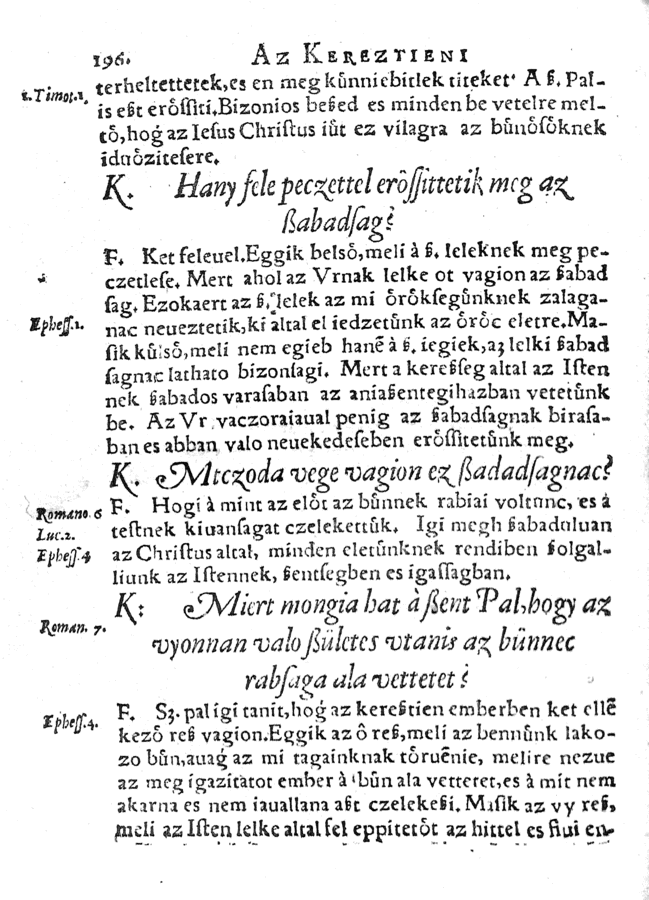 196. AZ KEREZTIENI
1. Timot. 1. terheltettetek, es en meg kůnniebitlek titeket' A ß. Pal-
is eßt erőſſiti. Bizonios beßed es minden be vetelre mel-
tő, hoǵ az Ieſus Chriſtus iůt ez vilagra az bůnőſőknek
iduőziteſere.
K. Hany fele peczettel erôſſittetik meg az
ßabadſag?
F. Ket feleuel. Eggik belſő, meli à ß. leleknek meg pe-
czetleſe. Mert ahol az Vrnak lelke ot vagion az ßabad
ſag. Ezokaert az ß. lelek az mi őrőkſegůnknek zalaga-
Epheſſ. 1. nac neueztetik, ki altal el iedzetůnk az őrőc eletre. Ma-
ſik kůlſő, meli nem egieb hanē à ß. iegiek, aʒ lelki ßabad
ſagnac lathato bizonſagi. Mert a kereßſeg altal az Iſten
nek ßabados varaſaban az aniaßentegihazban vetetůnk
be. Az Vr vaczoraiaual penig az ßabadſagnak biraſa-
ban es abban valo neuekedeſeben erőſſitetůnk meg.
K. Mtczoda vege vagion ez ßadadſagnac?
Romano. 6 F. Hogi à mint az előt az bůnnek rabiai voltunc, es à
Luc. 2. teſtnek kiuanſagat czelekettůk. Igi megh ßabaduluan
Epheſſ. 4 az Chriſtus altal, minden eletůnknek rendiben ßolgal-
liunk az Iſtennek, ßentſegben es igaſſagban.
K: Miert mongia hat à ßent Pal, hogy az
Roman. 7. vyonnan valo ßületes vtanis az bünnec
rabſaga ala vettetet?
F. Sʒ. pal igi tanit, hoǵ az kereßtien emberben ket ellē
Epheſſ. 4. kező reß vagion. Eggik az ô reß, meli az bennůnk lako-
zo bůn, auaǵ az mi tagainknak tőruēnie, melire nezue
az meg igazitatot ember à bůn ala vetteret, es à mit nem
akarna es nem iauallana aßt czelekeßi. Maſik az vy reß,
meli az Iſten lelke altal fel eppitetőt az hittel es ſiui en-